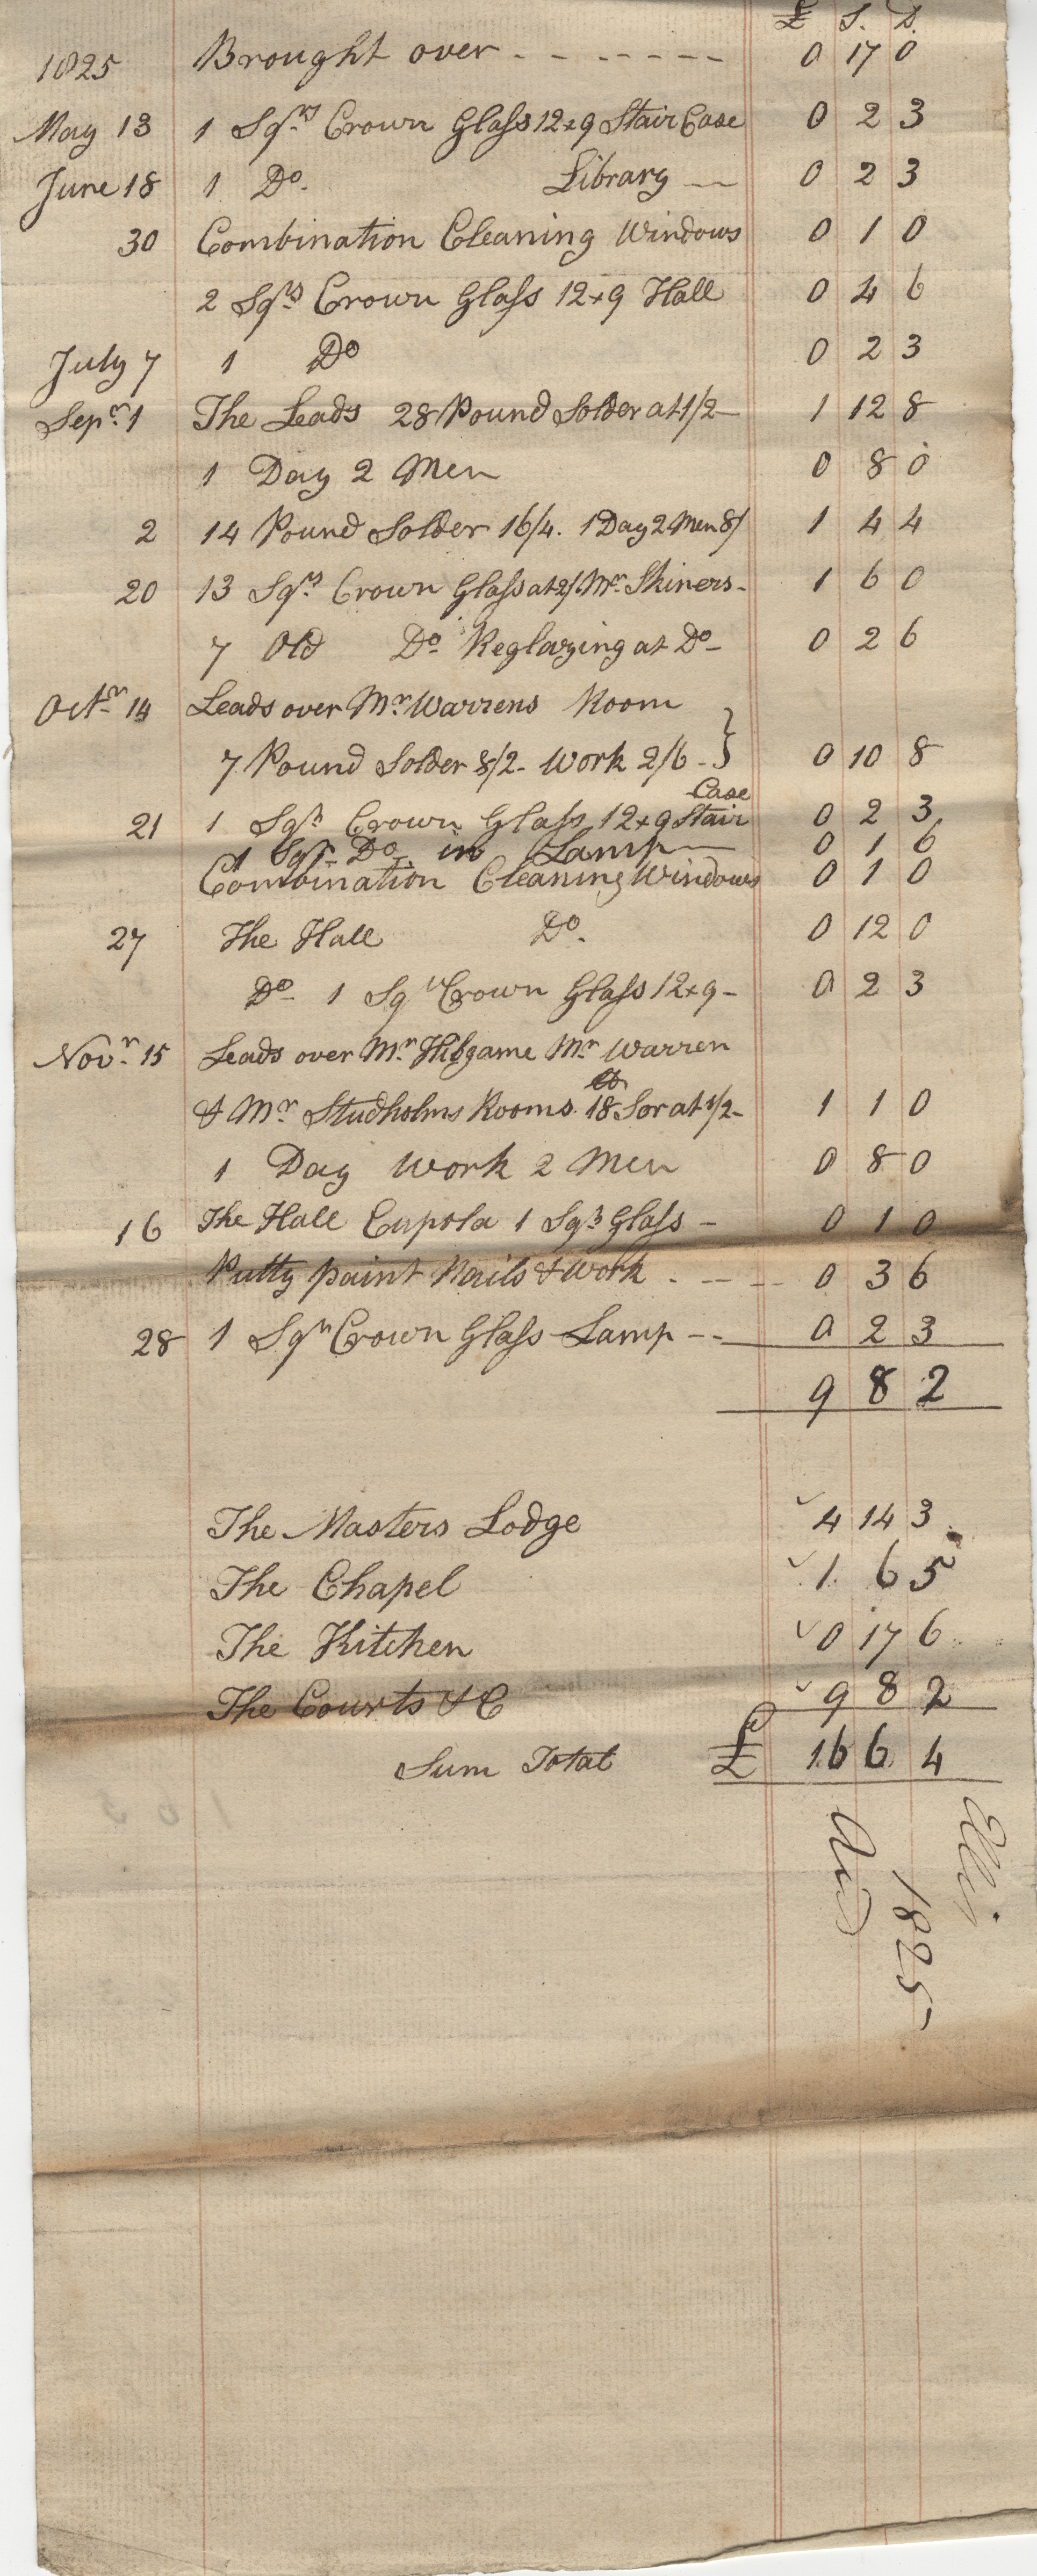 £ S. D.
1825 Brought over - - - - - - - 0 17 0
May 13 1 Sqrs Crown Glass 12x9 Stair Case 0 2 3
June 18 1 Do. Library — 0 2 3
30 Combination Cleaning Windows 0 1 0
2 Sqrs Crown Glass 12x9 Hall 0 4 6
July 7 1 Do 0 2 3
Sepr. 1 The Leads 28 Pound Solder at 1/2 — 1 12 8
1 Day 2 Men 0 8 0
2 14 Pound Solder 16/4. 1 Day 2 Men 8/ 1 4 4
20 13 Sqrs Crown Glass at 2/. Mr. Skiners - 1 6 0
7 Old Do Reglazing at Do - 0 2 6
Octr. 14 Leads over Mr. Warrens Room
7 Pound Solder 8/2 - Work 2/6 - } 0 10 8
Case
21 1 Sqr Crown Glass 12x9 Stair 0 2 3
1 Sqr Do in Lamp — 0 1 6
Combination Cleaning Windows 0 1 0
27 The Hall Do. 0 12 0
Do - 1 Sqr Crown Glass 12x9 - 0 2 3
Novr. 15 Leads over Mr. Hibgame Mr. Warren
& Mr Studholms Rooms. 18 lb Sor at 1/2 - 1 1 0
1 Day Work 2 Men 0 8 0
16 The Hall Cupola 1 Sqr Glass - 0 1 0
Putty paint Nails & Work - - - - 0 3 6
28 1 Sqr Crown Glass Lamp - - 0 2 3
9 8 2
The Masters Lodge 4 14 3
The Chapel 1. 6 5
The Kitchen 0 17 6
The Courts &C 9 8 2
Sum Total £ 16 6 4
Ellis
1825